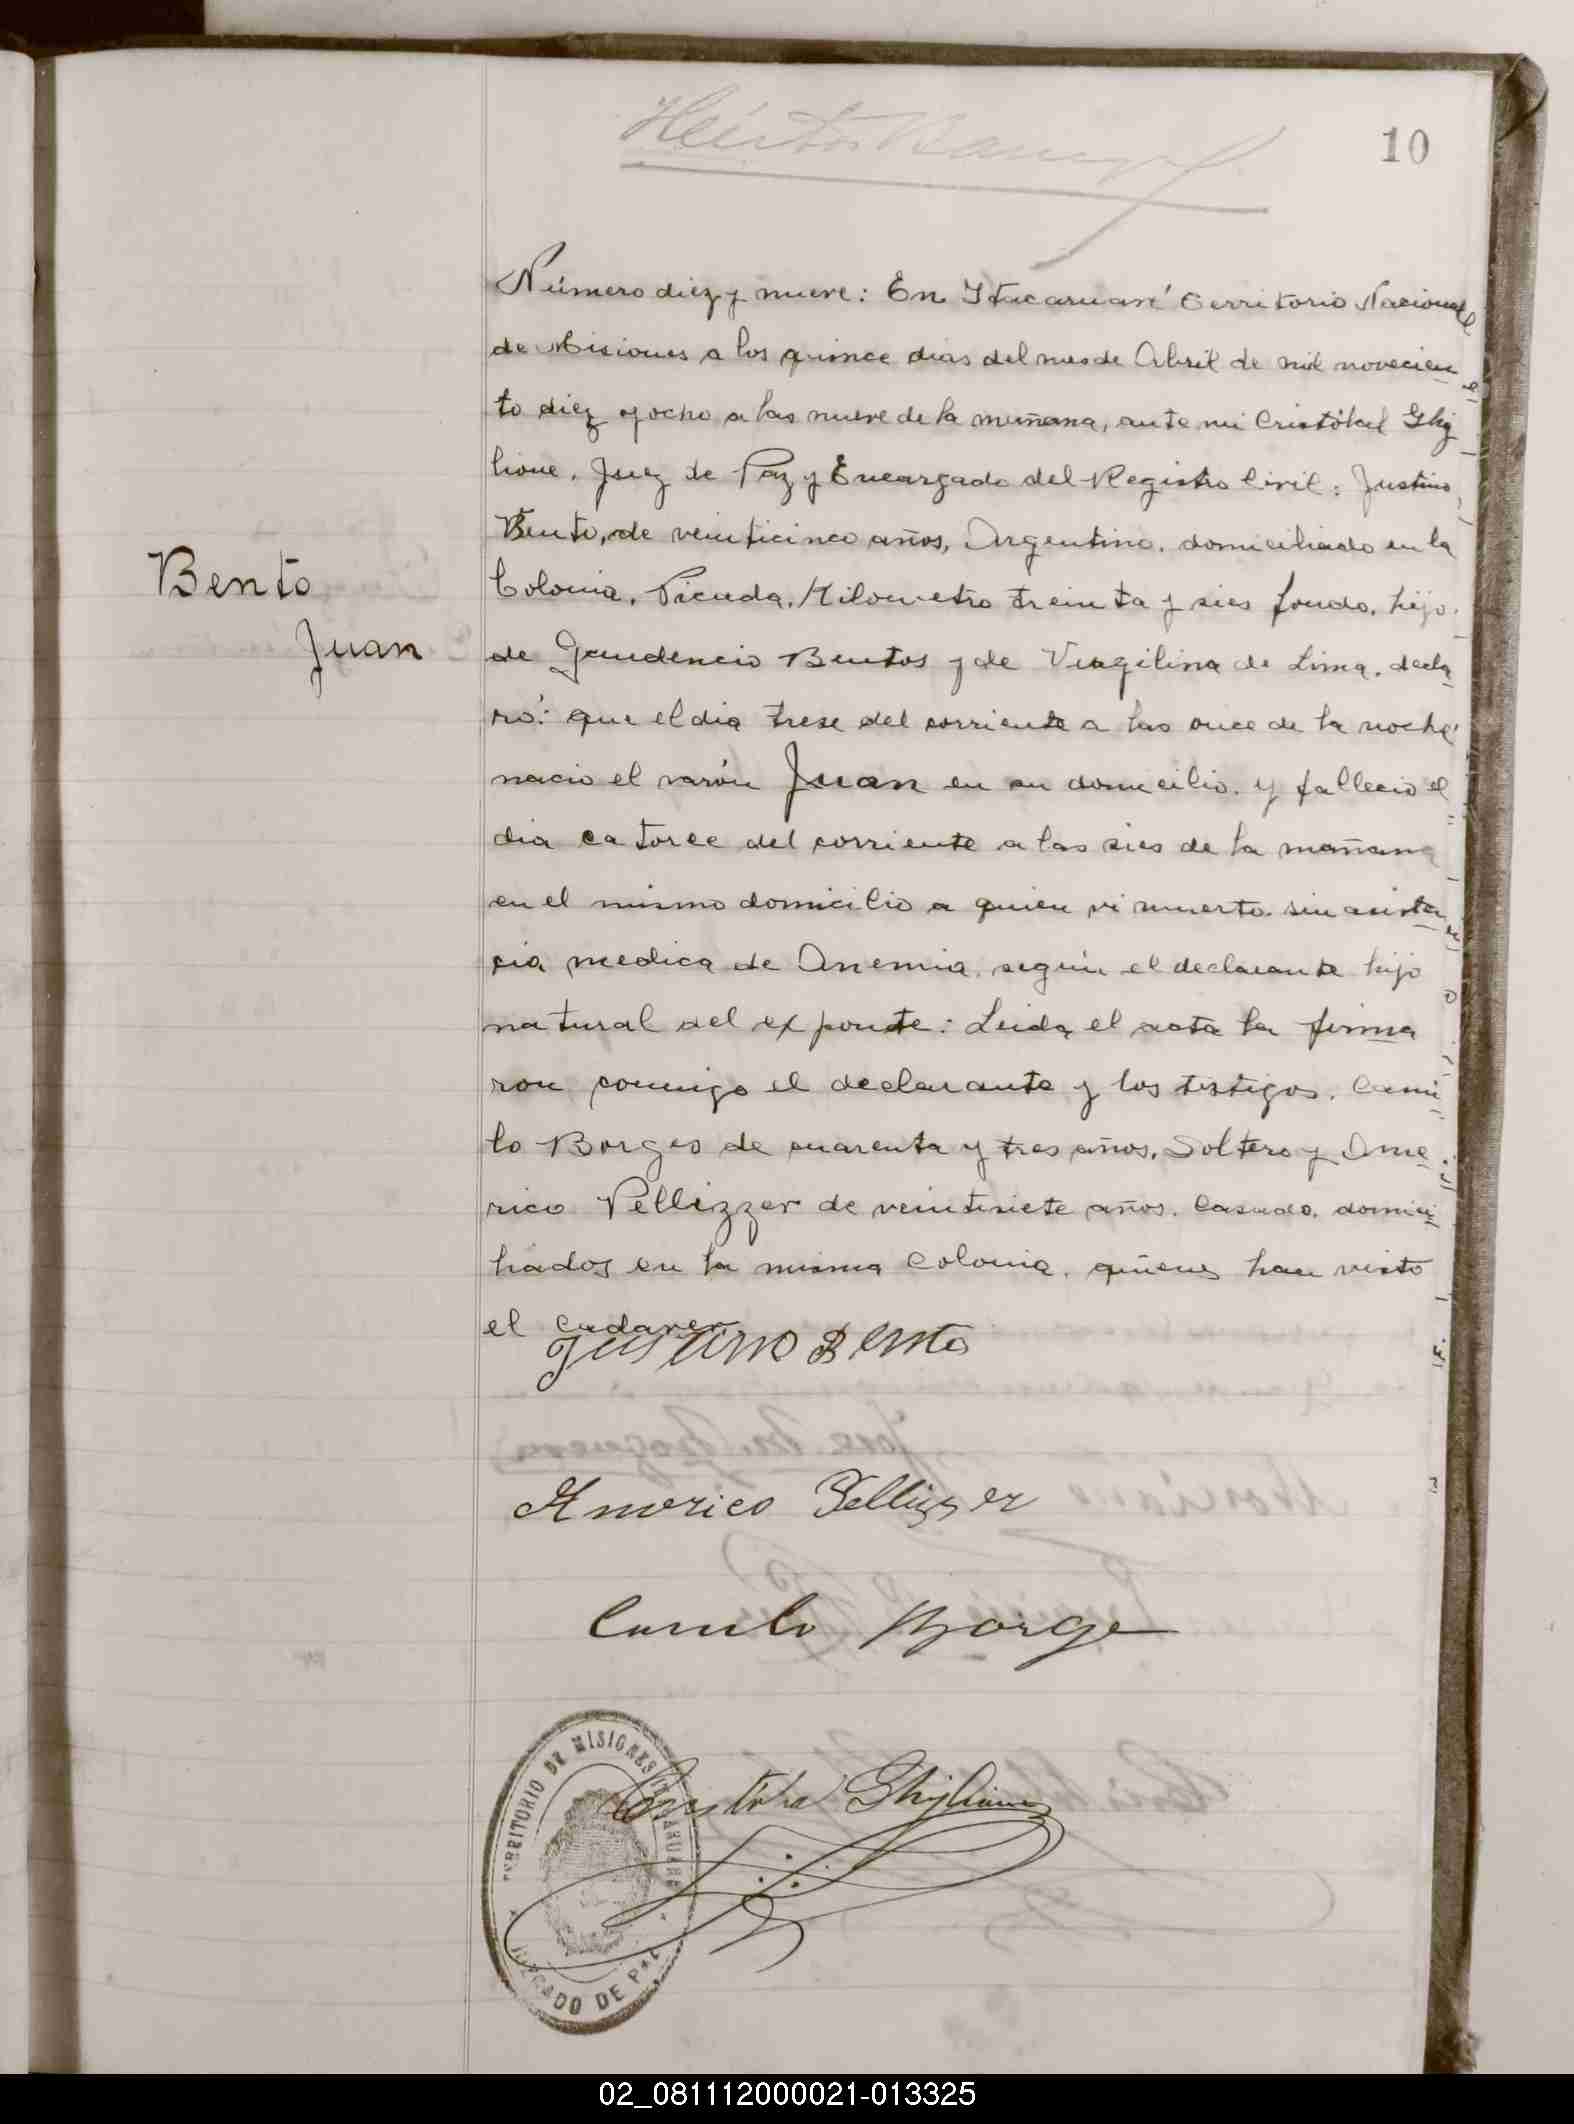 10
Número diez y nueve: En Itacaruaré territorio Nacional
de Misiones a los quince dias del mes de Abril de mil novecien
to diez y ocho a las nueve de la mañana, ante mi Cristóbal Ghig
lione, Juez de Paz y Encargado del Registro Civil: Justino
Bento, de veinticinco años, Argentino, domiciliado en la
Colonia, Picada, Kilometro treinta y sies fondo, hijo
de Gaudencio Bentos y de Virgilina de Lima, decla
ró: que el dia trese del corriente a las once de la noche
nacio el varón Juan en su domicilio y fallecio el
dia catorce del corriente a las sies de la mañana
en el mismo domicilio a quien vi muerto sin asisten
cia medica de Anemia, según el declarante hijo
natural del exponte: Leida el acta la firma
ron conmigo el declarante y los testigos, Cami
lo Borges de cuarenta y tres años, Soltero y Ame
rico Pellizzer de veintisiete años, Casado, domici
liados en la misma Colonia, quienes han visto
el cadaver
Bento
Juan
Justino Bento
Americo Pellizzer
Camilo Borge
Cristobal Ghiglione
TERRITORIO DE MISIONES ITACARUARE
JUZGADO DE PAZ
02_081112000021-013325